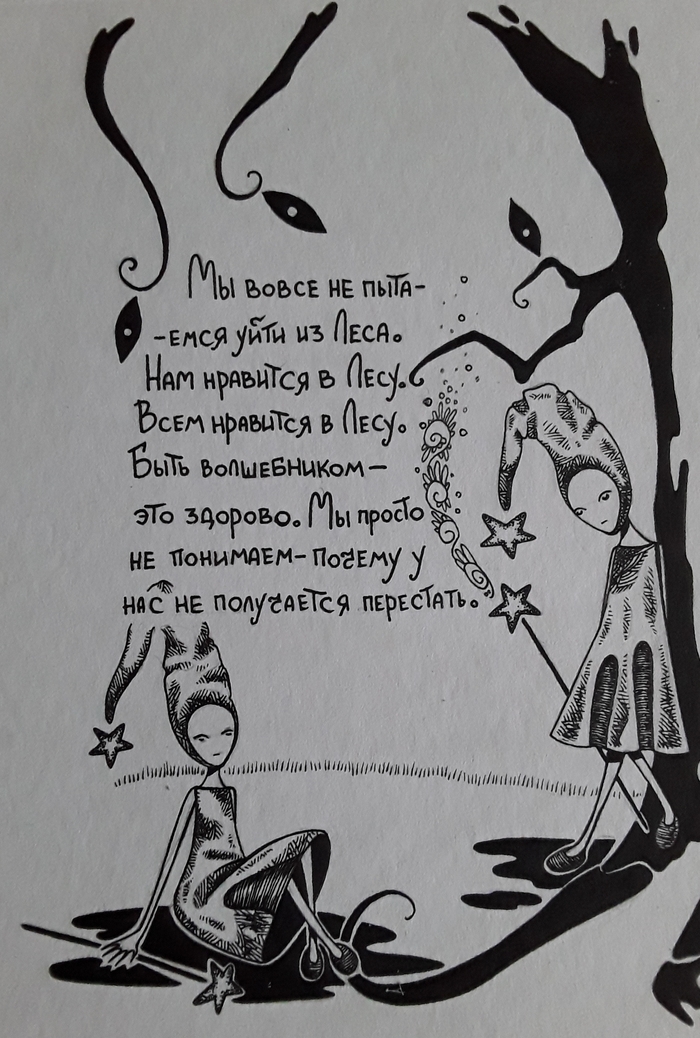 Мы вовсе не пыта-
-емся уйти из Леса.
Нам нравится в Лесу.
Всем нравится в Лесу.
Быть волшебником—
это здорово. Мы просто
не понимаем— почему у
нас не получается перестать.